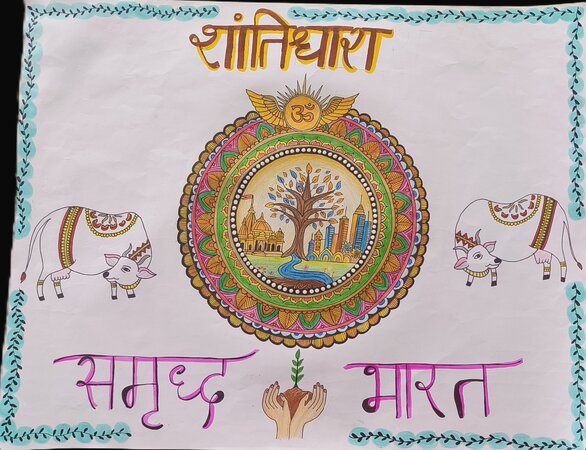 शांतिधारा
ॐ
समृध्द भारत